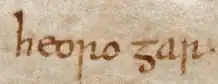 heoro gar.